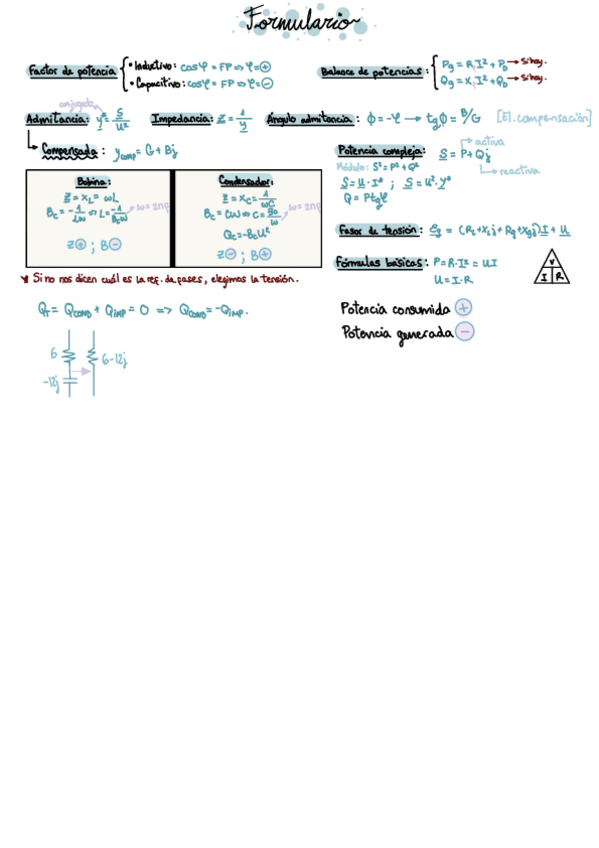 Formulario
Factor de potencia
• Inductivo: cosφ = FP => φ = +
• Capacitivo: cosφ = FP => φ = -
Balance de potencias:
Pg = R·I² + P₀ → Si hay.
Qg = X·I² + Q₀ → Si hay.
conjugado
Admitancia: y* = S/U²
Impedancia: Z = 1/y
Ángulo admitancia: φ = -φ → tgφ = B/G [EJ. compensación]
Compensada: y comp = G + Bj
Potencia compleja: S = P + Qj
activa
reactiva
Módulo: S² = P² + Q²
S = U · I* ; S = U² · Y*
Q = P tgφ
Bobina:
Z = XL = ωL
BL = -1/Lω => L = -1/BLω
ω = 2πf
Z + ; B -
Condensador:
Z = XC = 1/ωC
BC = Cω => C = BC/ω
ω = 2πf
QC = -BC U²
Z - ; B +
Fasor de tensión: Eg = (RL + XLj + Rg + Xgj) I + U
Fórmulas básicas: P = R·I² = UI
U = I·R
V
I R
Si no nos dicen cuál es la ref. de fases, elegimos la tensión.
QT = QCOND + QIMP = 0 => QCOND = -QIMP.
Potencia consumida +
Potencia generada -
6
-12j
6-12j